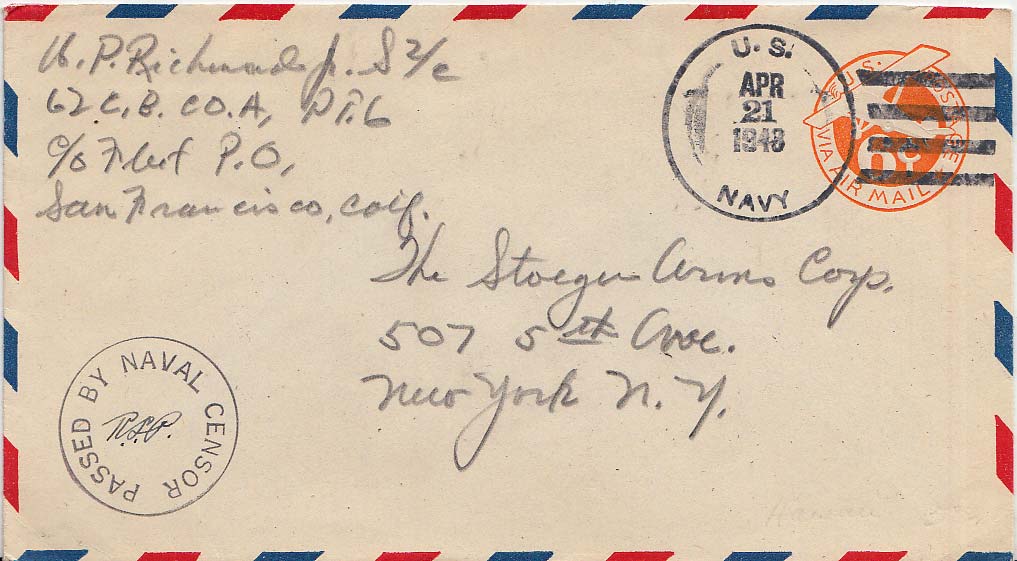 P. Richmond Jr. S 2/c
62 C.B. CO. A, PT. 6
c/o Fleet P.O,
San Francisco, Calif.
U.S.
APR
21
1943
NAVY
U.S. POSTAGE
6¢
VIA AIR MAIL
The Stoeger Arms Corp.
507 5th Ave.
New York N.Y.
PASSED BY NAVAL CENSOR